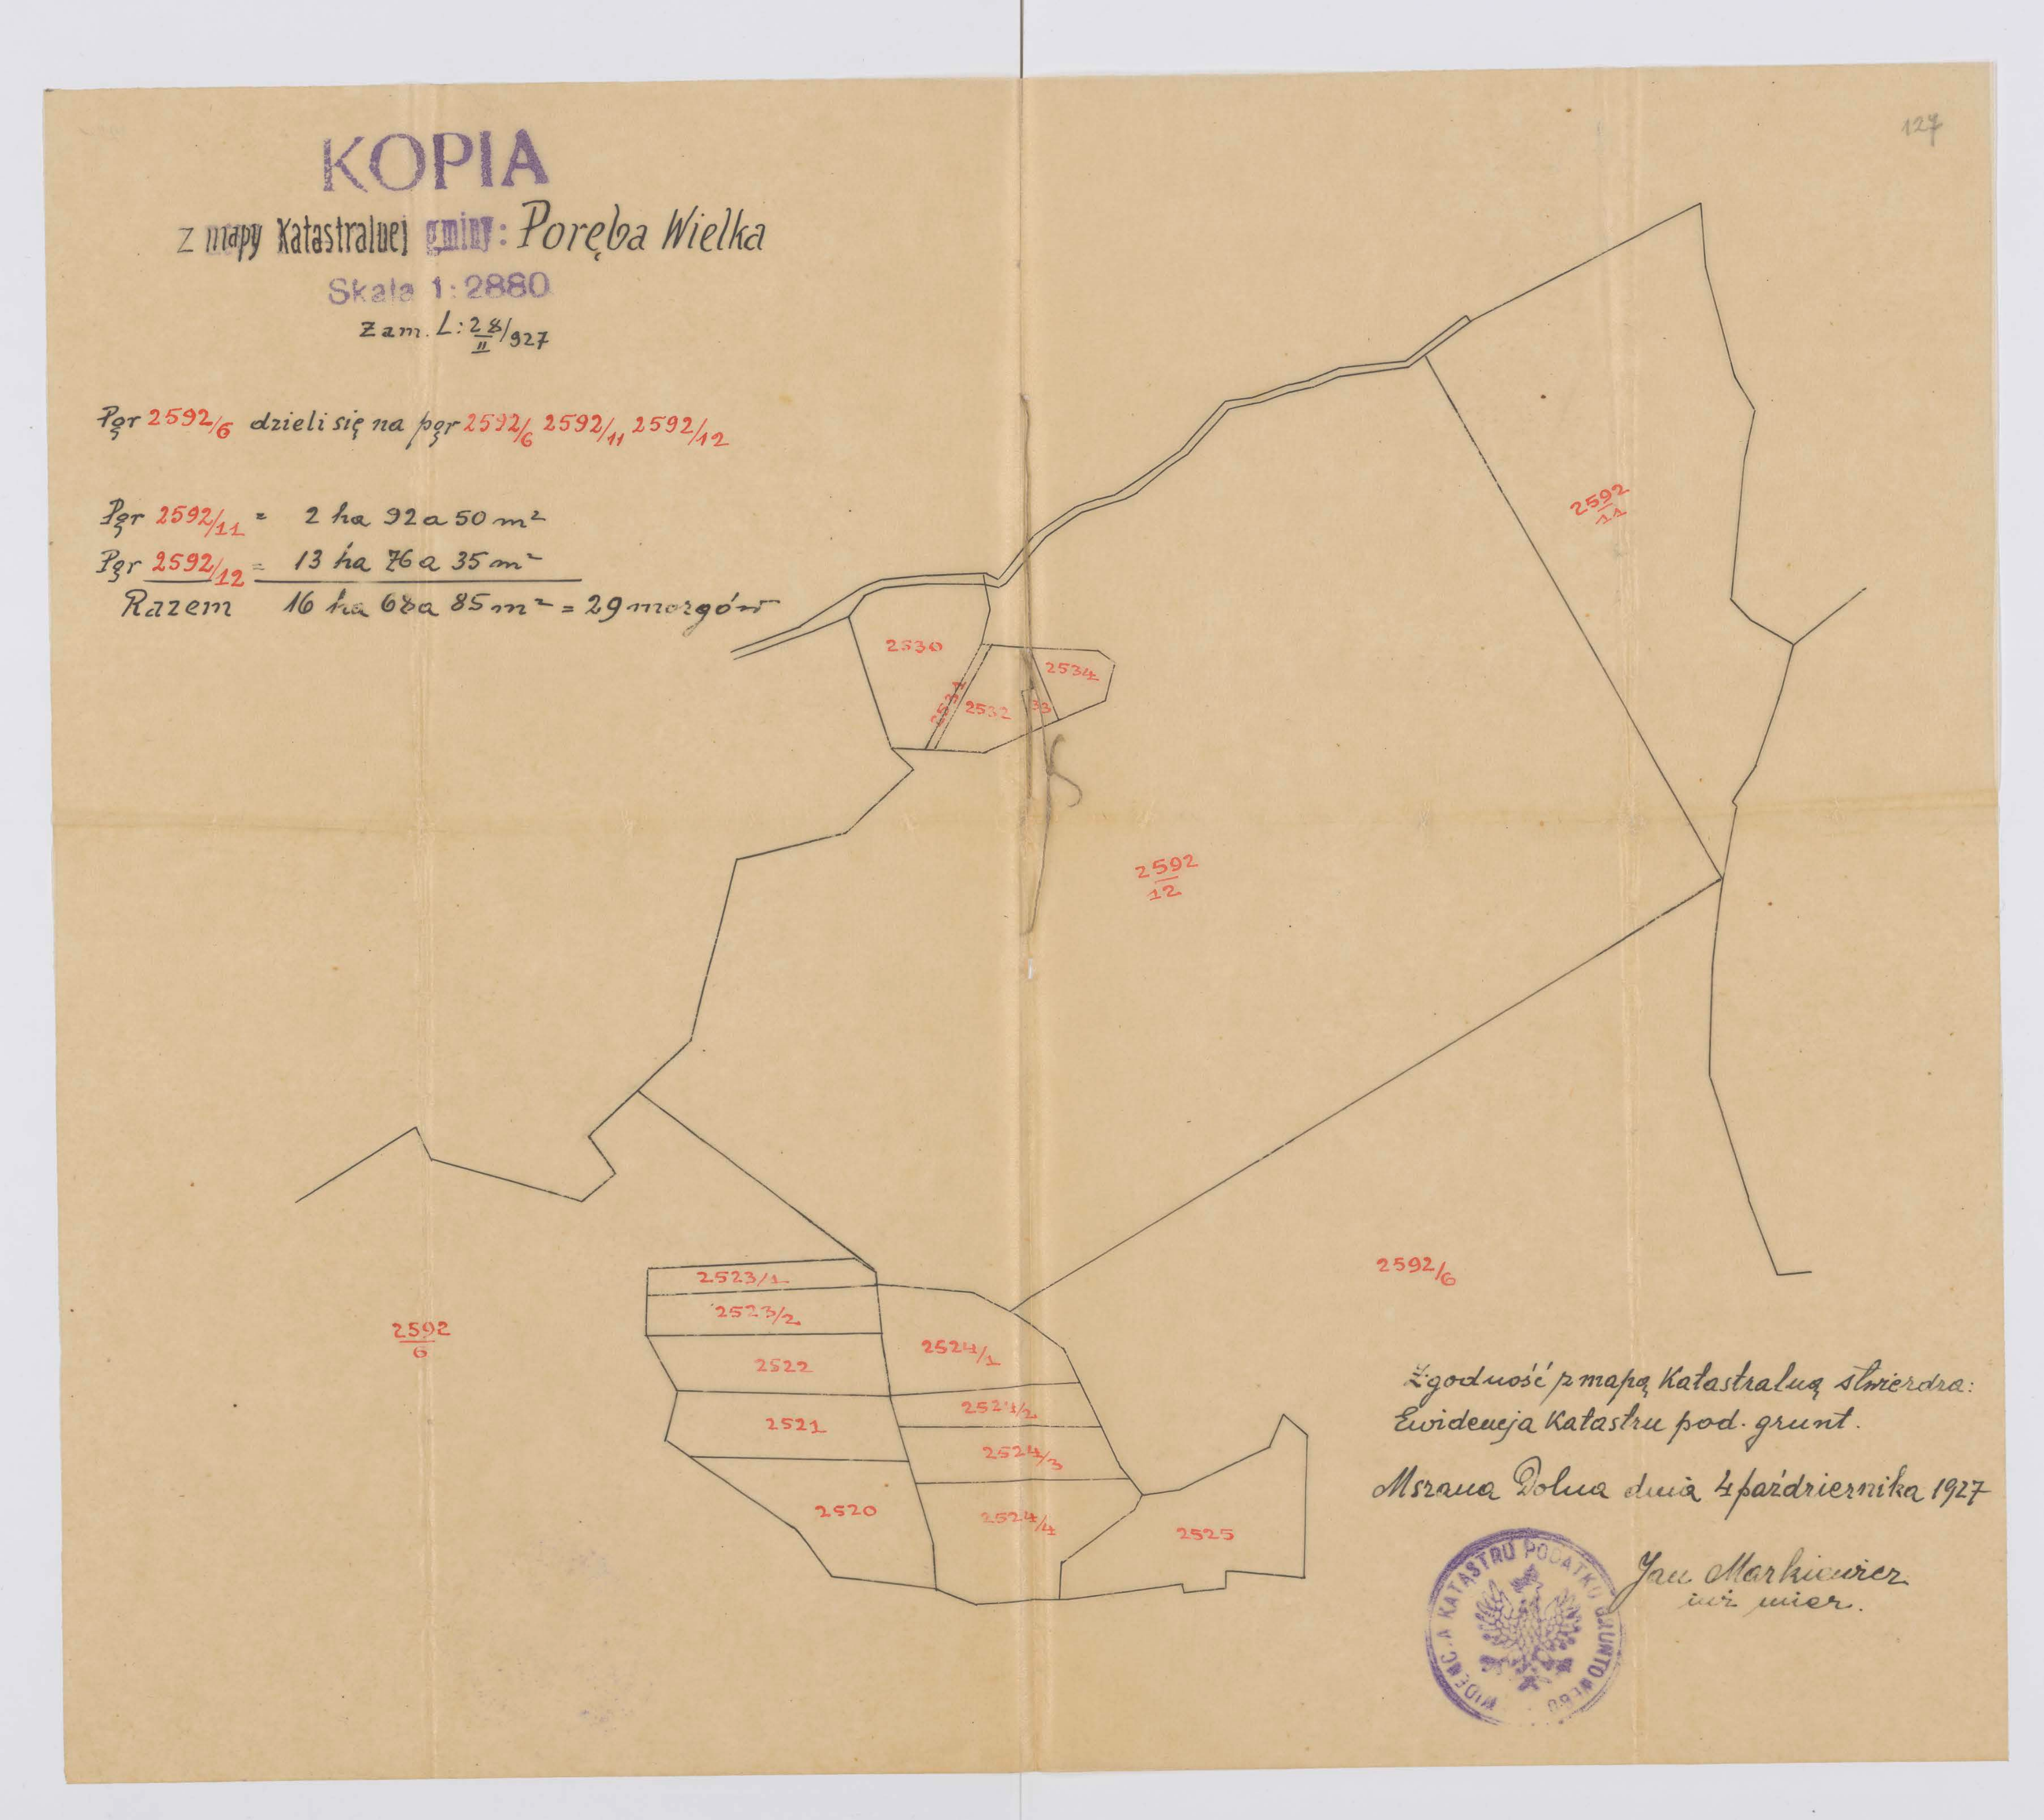 127
KOPIA
z mapy Katastralnej gminy: Poręba Wielka
Skala 1:2880
Zam. L: 28/II/927
Pgr 2592/6 dzieli się na pgr 2592/6 2592/11 2592/12
Pgr 2592/11 = 2 ha 92 a 50 m²
Pgr 2592/12 = 13 ha 76 a 35 m²
Razem 16 ha 68 a 85 m² = 29 morgów
2592/11
2530
2534
2531
2532
33
2592/12
2592/6
2523/1
2523/2
2592/6
2524/1
2522
2524/2
2521
2524/3
2520
2524/4
2525
Zgodność z mapą Katastralną stwierdza:
Ewidencja Katastru pod. grunt.
Mszana Dolna dnia 4 października 1927
Jan Markiewicz
inż mier.
EWIDENCJA KATASTRU PODATKU GRUNTOWEGO